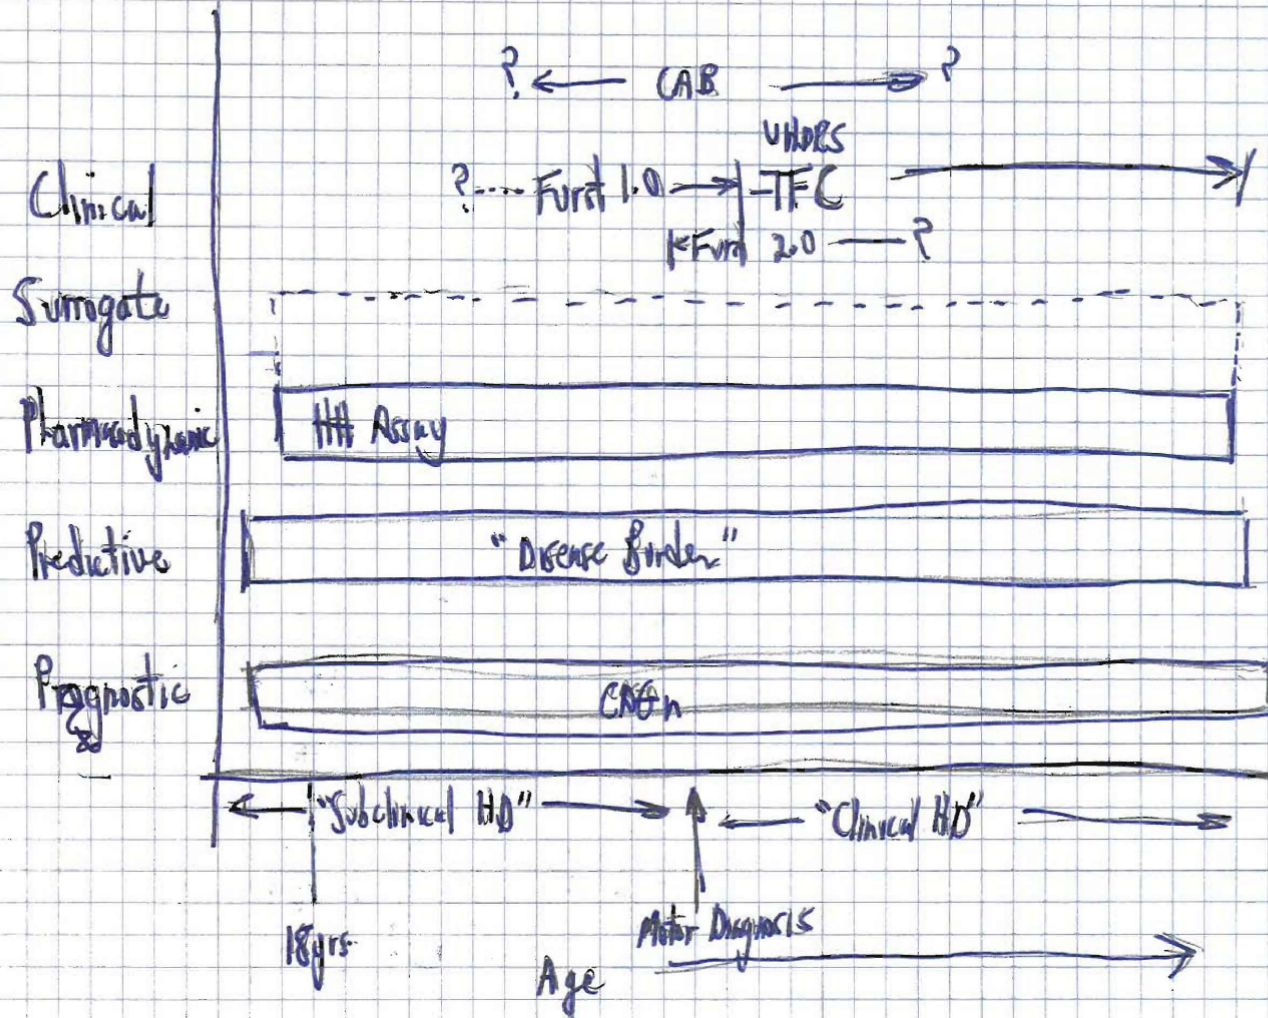 ? ← CAB → ?
UHDRS
Clinical
?---- Furst 1.0 → TFC →
Furst 2.0 — ?
Surrogate
Pharmacodynamic
Htt Assay
Predictive
"Disease Burden"
Prognostic
CAGn
← "Subclinical HD" →
← "Clinical HD" →
18yrs.
Motor Diagnosis
Age →